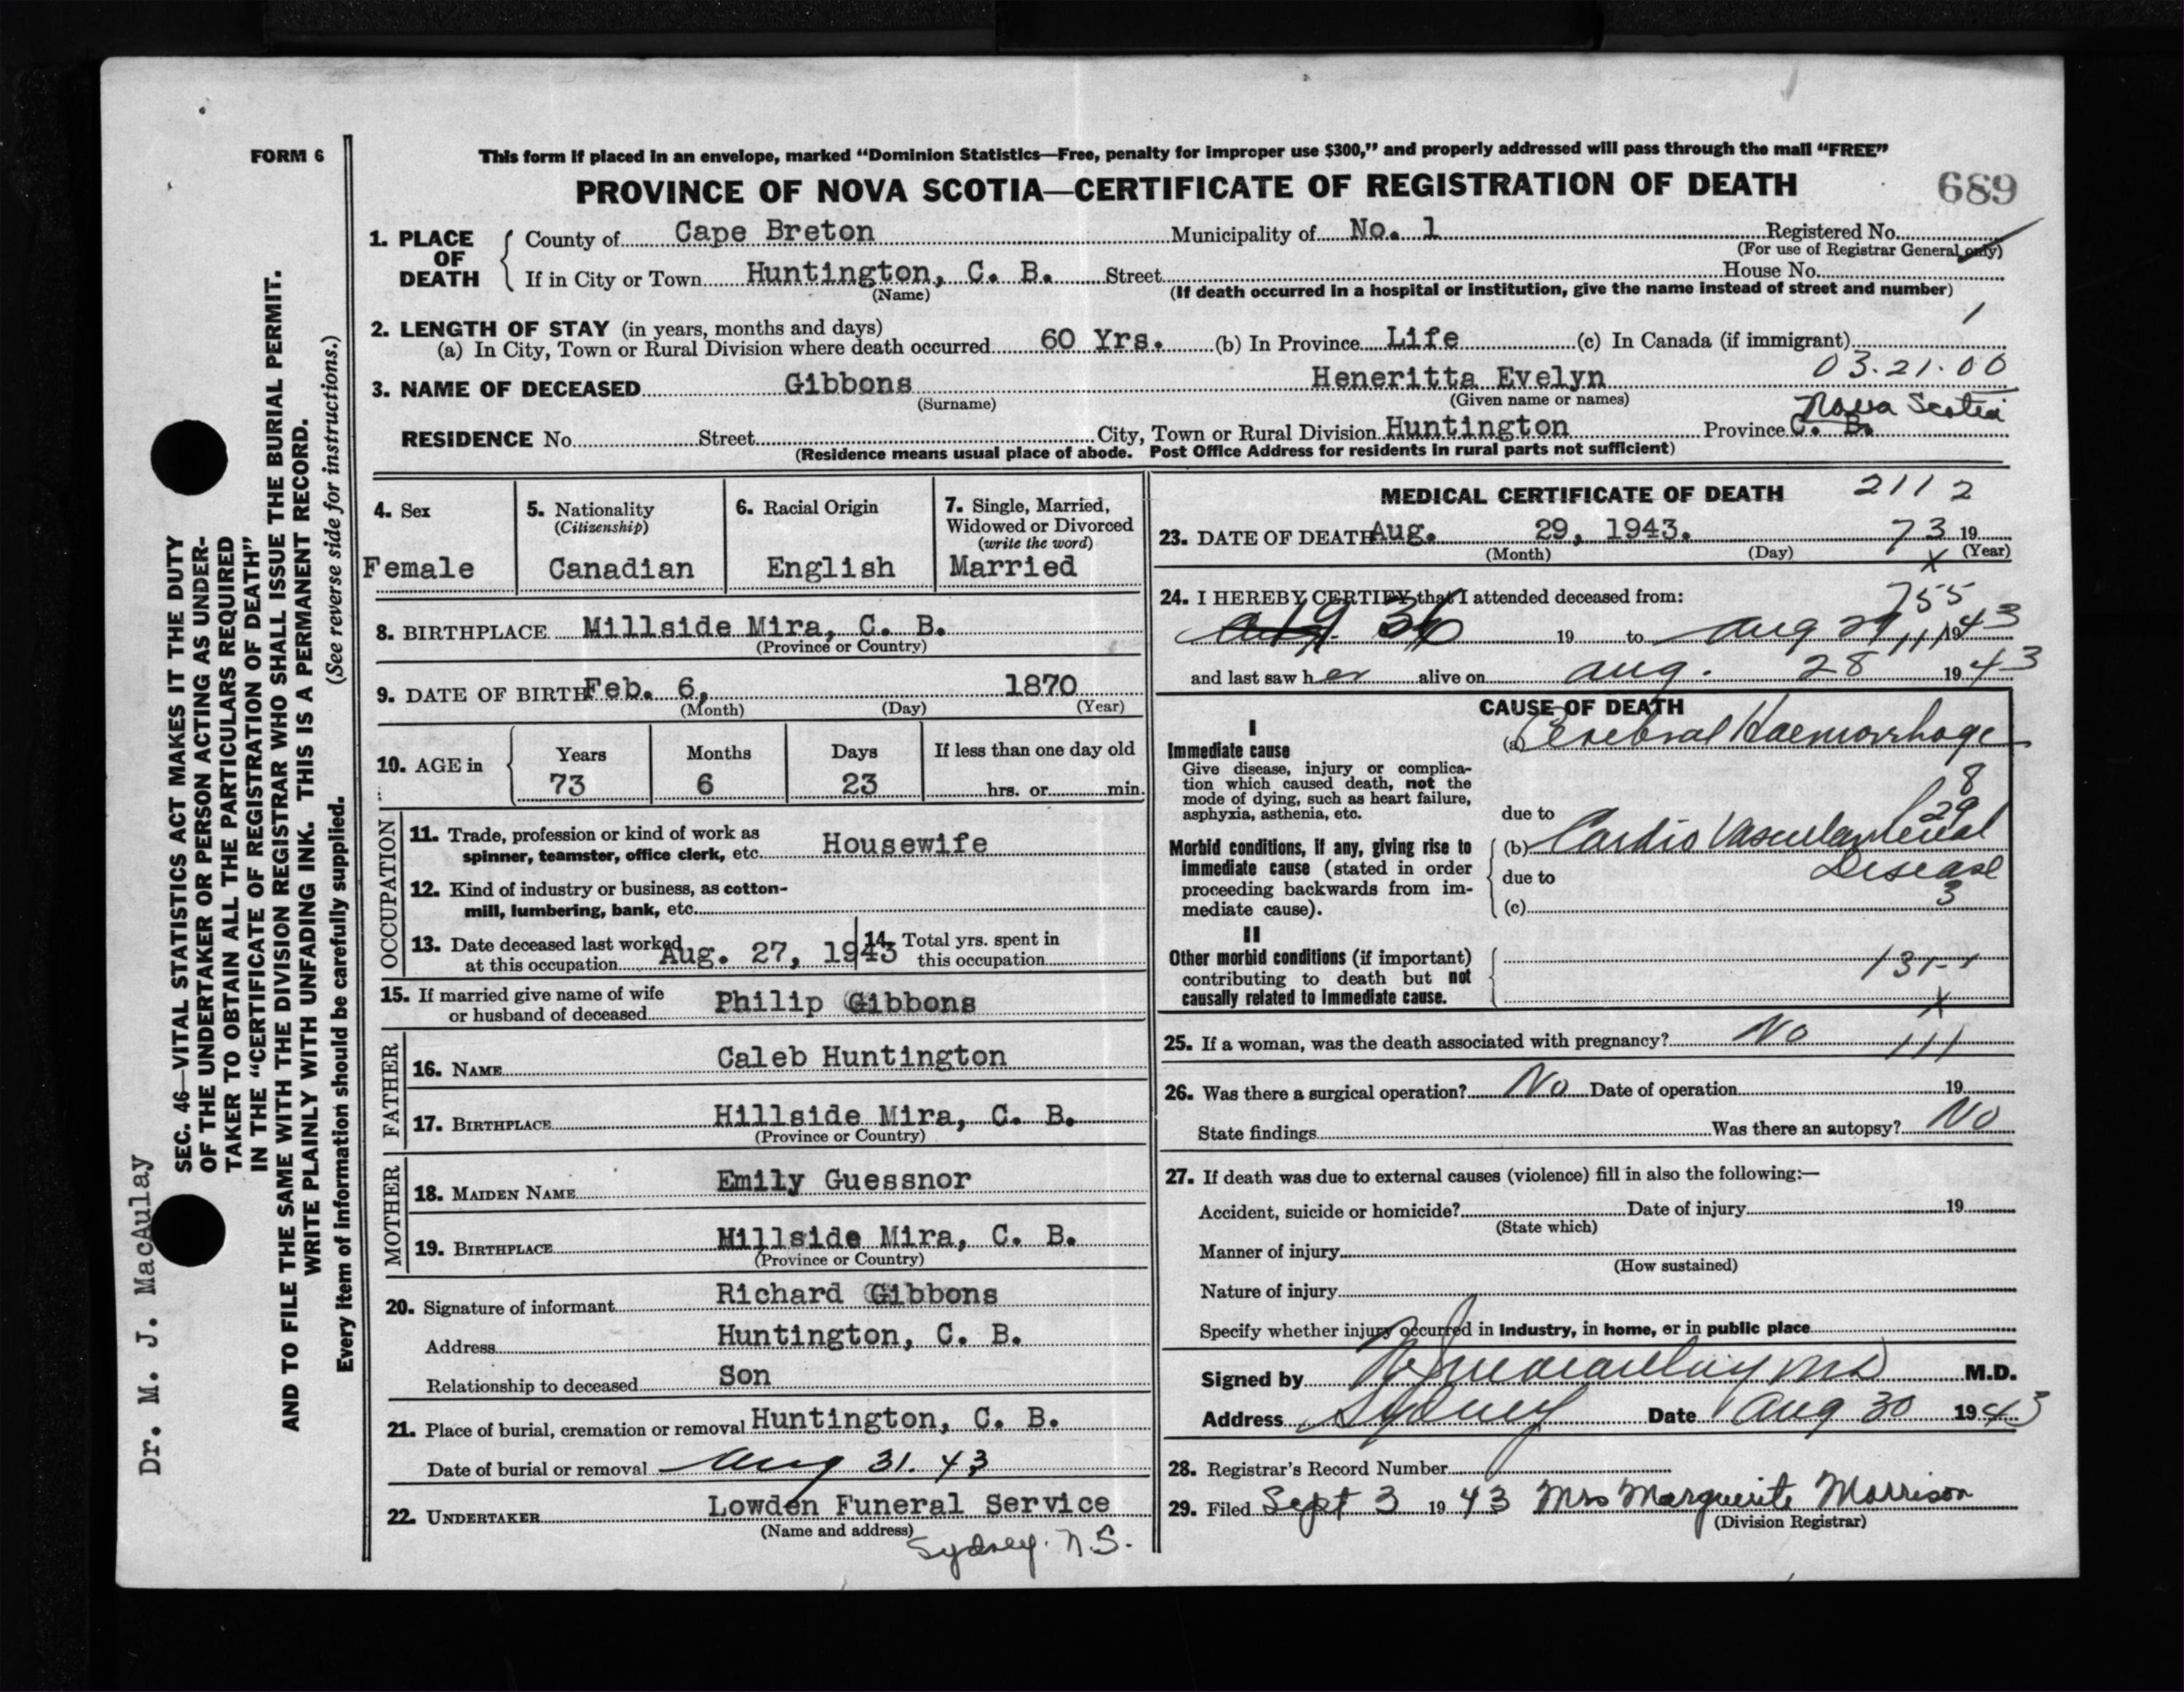 FORM 6
This form if placed in an envelope, marked “Dominion Statistics—Free, penalty for improper use $300,” and properly addressed will pass through the mail “FREE”
PROVINCE OF NOVA SCOTIA—CERTIFICATE OF REGISTRATION OF DEATH
689
1. PLACE OF DEATH
County of Cape Breton Municipality of No. 1 Registered No.
(For use of Registrar General only)
If in City or Town Huntington, C. B. Street House No.
(Name) (If death occurred in a hospital or institution, give the name instead of street and number)
2. LENGTH OF STAY (in years, months and days)
(a) In City, Town or Rural Division where death occurred 60 Yrs. (b) In Province Life (c) In Canada (if immigrant)
03.21.00
3. NAME OF DECEASED Gibbons Heneritta Evelyn
(Surname) (Given name or names)
Nova Scotia
RESIDENCE No. Street City, Town or Rural Division Huntington Province C. B.
(Residence means usual place of abode. Post Office Address for residents in rural parts not sufficient)
4. Sex
Female
5. Nationality
(Citizenship)
Canadian
6. Racial Origin
English
7. Single, Married,
Widowed or Divorced
(write the word)
Married
8. BIRTHPLACE Millside Mira, C. B.
(Province or Country)
9. DATE OF BIRTH Feb. 6, 1870
(Month) (Day) (Year)
10. AGE in
Years Months Days If less than one day old
73 6 23 hrs. or min.
OCCUPATION
11. Trade, profession or kind of work as
spinner, teamster, office clerk, etc. Housewife
12. Kind of industry or business, as cotton-
mill, lumbering, bank, etc.
13. Date deceased last worked
at this occupation Aug. 27, 1943
14. Total yrs. spent in
this occupation
15. If married give name of wife
or husband of deceased Philip Gibbons
FATHER
16. NAME Caleb Huntington
17. BIRTHPLACE Hillside Mira, C. B.
(Province or Country)
MOTHER
18. MAIDEN NAME Emily Guessnor
19. BIRTHPLACE Hillside Mira, C. B.
(Province or Country)
20. Signature of informant Richard Gibbons
Address Huntington, C. B.
Relationship to deceased Son
21. Place of burial, cremation or removal Huntington, C. B.
Date of burial or removal Aug 31. 43
22. UNDERTAKER Lowden Funeral Service
(Name and address) Sydney. N.S.
MEDICAL CERTIFICATE OF DEATH
2112
23. DATE OF DEATH Aug. 29, 1943. 73 19
(Month) (Day) (Year)
x
24. I HEREBY CERTIFY that I attended deceased from:
755
19 36 19 to Aug 29 1943
111
and last saw her alive on Aug. 28 1943
CAUSE OF DEATH
I
Immediate cause
Give disease, injury or complica-
tion which caused death, not the
mode of dying, such as heart failure,
asphyxia, asthenia, etc.
(a) Cerebral Haemorrhage
8
29
due to
Morbid conditions, if any, giving rise to
immediate cause (stated in order
proceeding backwards from im-
mediate cause).
(b) Cardio Vascular Renal
Disease
due to
3
(c)
II
Other morbid conditions (if important)
contributing to death but not
causally related to immediate cause.
x
25. If a woman, was the death associated with pregnancy? No
111
26. Was there a surgical operation? No Date of operation 19
State findings Was there an autopsy? No
27. If death was due to external causes (violence) fill in also the following:—
Accident, suicide or homicide? Date of injury 19
(State which)
Manner of injury
(How sustained)
Nature of injury
Specify whether injury occurred in industry, in home, or in public place
Signed by M J MacAulay MD M.D.
Address Sydney Date Aug 30 1943
28. Registrar's Record Number
29. Filed Sept 3 1943 Mrs Marguerite Morrison
(Division Registrar)
SEC. 46—VITAL STATISTICS ACT MAKES IT THE DUTY
OF THE UNDERTAKER OR PERSON ACTING AS UNDER-
TAKER TO OBTAIN ALL THE PARTICULARS REQUIRED
IN THE “CERTIFICATE OF REGISTRATION OF DEATH”
AND TO FILE THE SAME WITH THE DIVISION REGISTRAR WHO SHALL ISSUE THE BURIAL PERMIT.
WRITE PLAINLY WITH UNFADING INK. THIS IS A PERMANENT RECORD.
Every item of information should be carefully supplied. (See reverse side for instructions.)
Dr. M. J. MacAulay